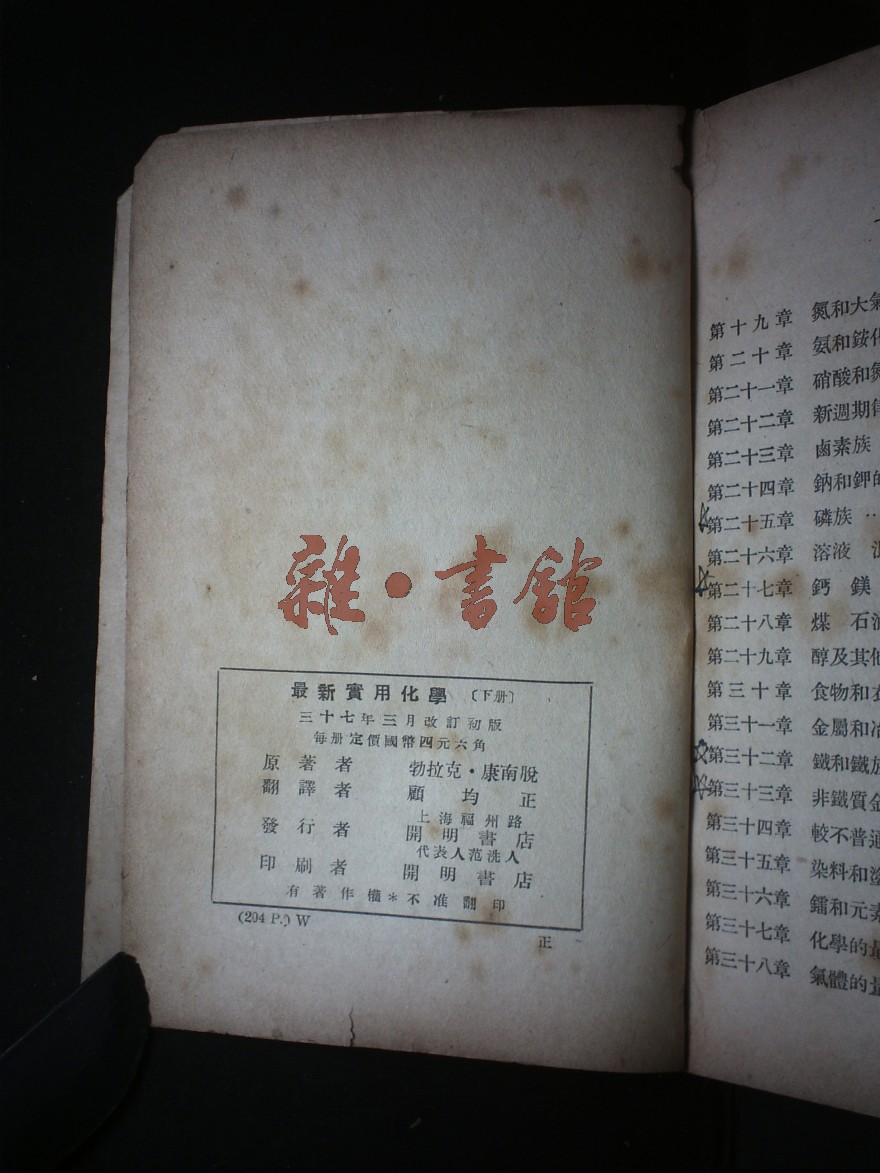 雜•書館
最新實用化學 〔下册〕
三十七年三月改訂初版
每册定價國幣四元六角
原著者 勃拉克·康南脫
翻譯者 顧均正
發行者 上海福州路
開明書店
代表人范洗人
印刷者 開明書店
有著作權＊不准翻印
(204 P.) W
正
第十九章 氮和大氣
第二十章 氨和銨化
第二十一章 硝酸和氮
第二十二章 新週期律
第二十三章 鹵素族
第二十四章 鈉和鉀的
第二十五章 磷族 ‥
第二十六章 溶液
第二十七章 鈣 鎂
第二十八章 煤 石油
第二十九章 醇及其他
第三十章 食物和衣
第三十一章 金屬和冶
第三十二章 鐵和鐵族
第三十三章 非鐵質金
第三十四章 較不普通
第三十五章 染料和塗
第三十六章 鐳和元素
第三十七章 化學的量
第三十八章 氣體的量